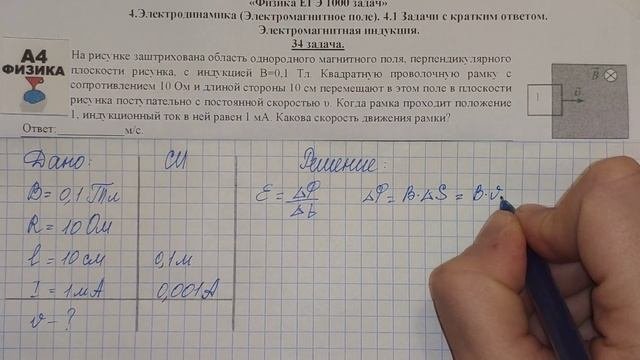 «Физика ЕГЭ 1000 задач»
4.Электродинамика (Электромагнитное поле). 4.1 Задачи с кратким ответом.
Электромагнитная индукция.
34 задача.
А4
ФИЗИКА
На рисунке заштрихована область однородного магнитного поля, перпендикулярного
плоскости рисунка, с индукцией B=0,1 Тл. Квадратную проволочную рамку с
сопротивлением 10 Ом и длиной стороны 10 см перемещают в этом поле в плоскости
рисунка поступательно с постоянной скоростью υ. Когда рамка проходит положение
1, индукционный ток в ней равен 1 мА. Какова скорость движения рамки?
Ответ: ____________ м/с.
1
υ
B
Дано: СИ Решение:
B = 0,1 Тл
R = 10 Ом
l = 10 см 0,1 м
I = 1 мА 0,001 А
v - ?
ε = ΔФ/Δt ΔФ = B·ΔS = B·v